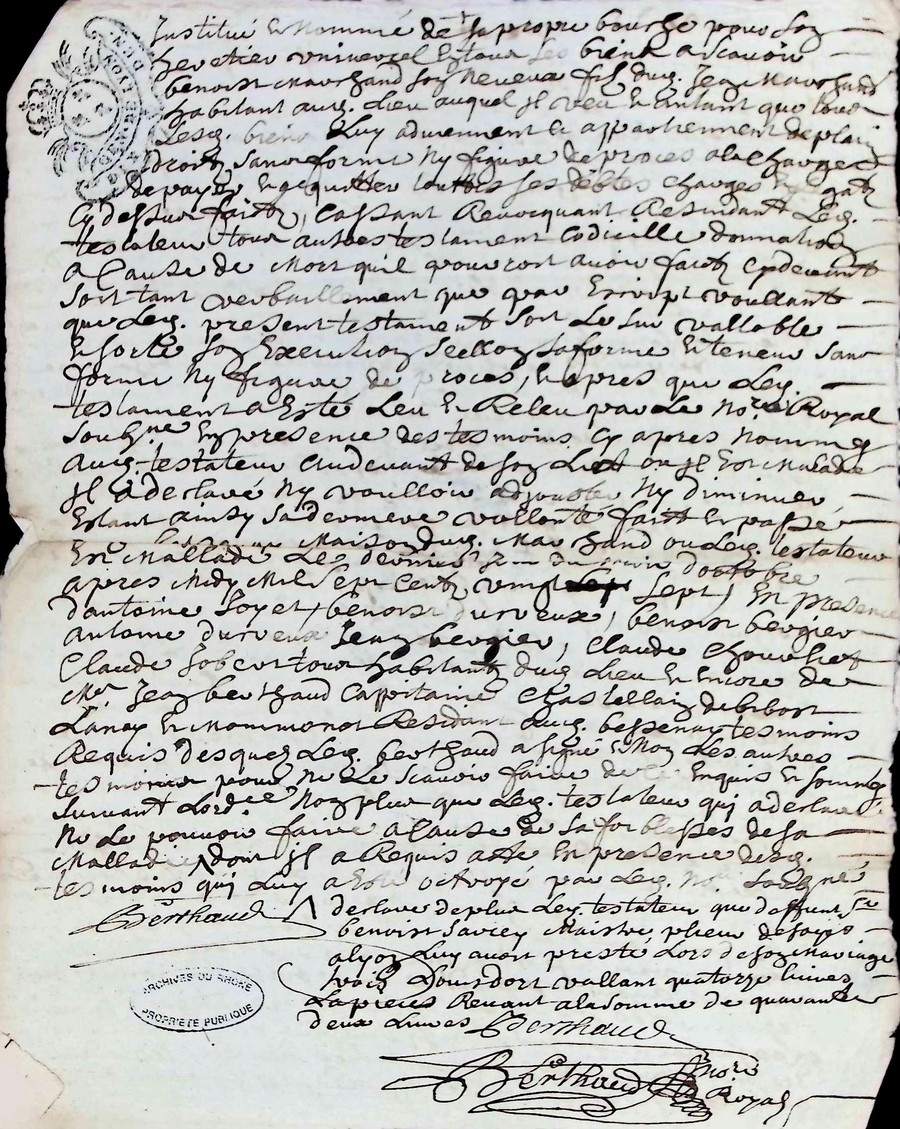 Institué et nommé de sa propre bouche pour son
heretier universel en tous ses biens a scavoir
benoist Marchand son neveux fils dud. Jean Marchand
habitant aud. lieu auquel il veu et entant que tous
lesd. biens luy adviennent et appartiennent de plain
droit sans forme ny figure de proces a la charge
de payer et acquitter touttes ses debtes charges et legatz
cy dessus faits, cassant Revocquant Resindant led.
testateur tous autres testament codicille donnation
a cause de mort quil pourroit avoir faits cydevant
soit tant verballement que par Escript voullant
que led. present testament soit le sur vallable
et sorte son Execution sellon sa forme et teneur sans
forme ny figure de proces, et apres que led.
testament a esté leu et Releu par le no.re Royal
soubs.né en presence des tesmoins cy apres nommes
aud. testateur audevant de son lict ou il est malade
il a declaré ny voulloir adjouter ny diminuer
estant ainsy sa derniere vollonté fait et passé
maison dud. Marchand ou led. testateur
est mallade le dernier jour du mois doctobre
apres midy mil sept cents vingt sept, en presence
dantoine soyet, benoist durveux, benoist bergier
antoine durveux Jean bergier, Claude Chouvet
Claude Jobert tous habitants dud. lieu et encore de
Mr. Jean berthaud cappitaine chastellain de bibost
lanay et Montmonot Residant aud. bessenay tesmoins
Requis desquels led. berthaud a signé et non les autres
tesmoins pour ne le scavoir faire de ce enquis et sommes
suivant lord.ce non plus que led. testateur qui a declaré
ne le pouvoir faire a cause de sa forblesses de sa
malladie dont il a Requis acte en presence desd.
tesmoins qui luy a esté octroyé par led. no.re soubsigné
Berthaud declare de plus led. testateur que deffunt sr
benoist savey Maistre plieur de soyes
a lyon luy avoit presté lors de son mariage
trois Louis dort vallant quatorze livres
la pieces Revenant a la somme de quarante
deux livres Berthaud
Berthaud no.re Royal
ARCHIVES DU RHONE
PROPRIETE PUBLIQUE